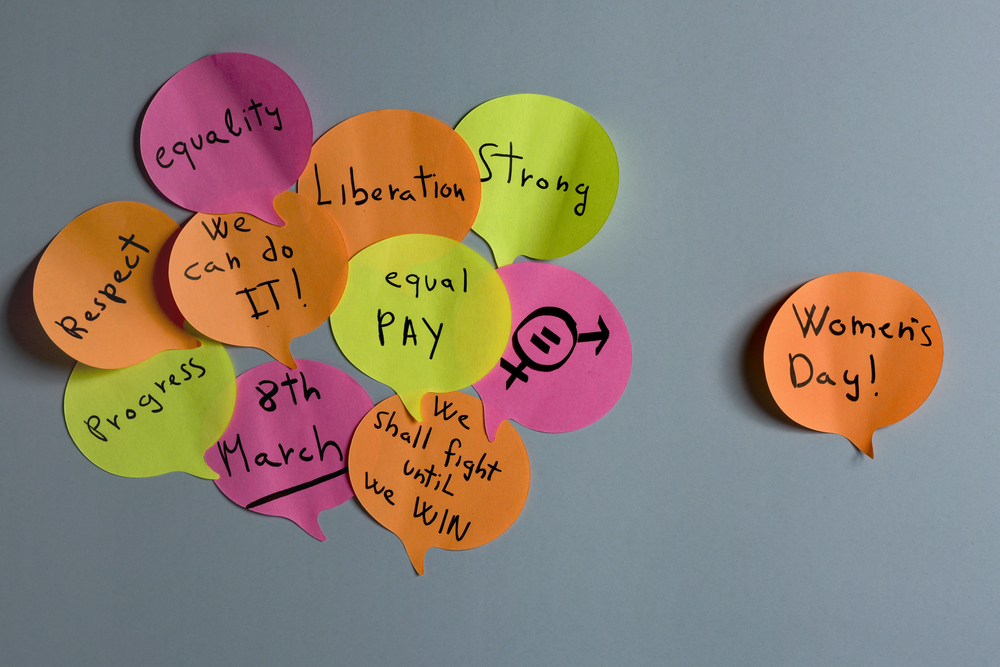 equality
Liberation
Strong
Respect
We
can do
IT!
equal
PAY
Progress
8th
March
We
shall fight
until
we WIN
Women's
Day!